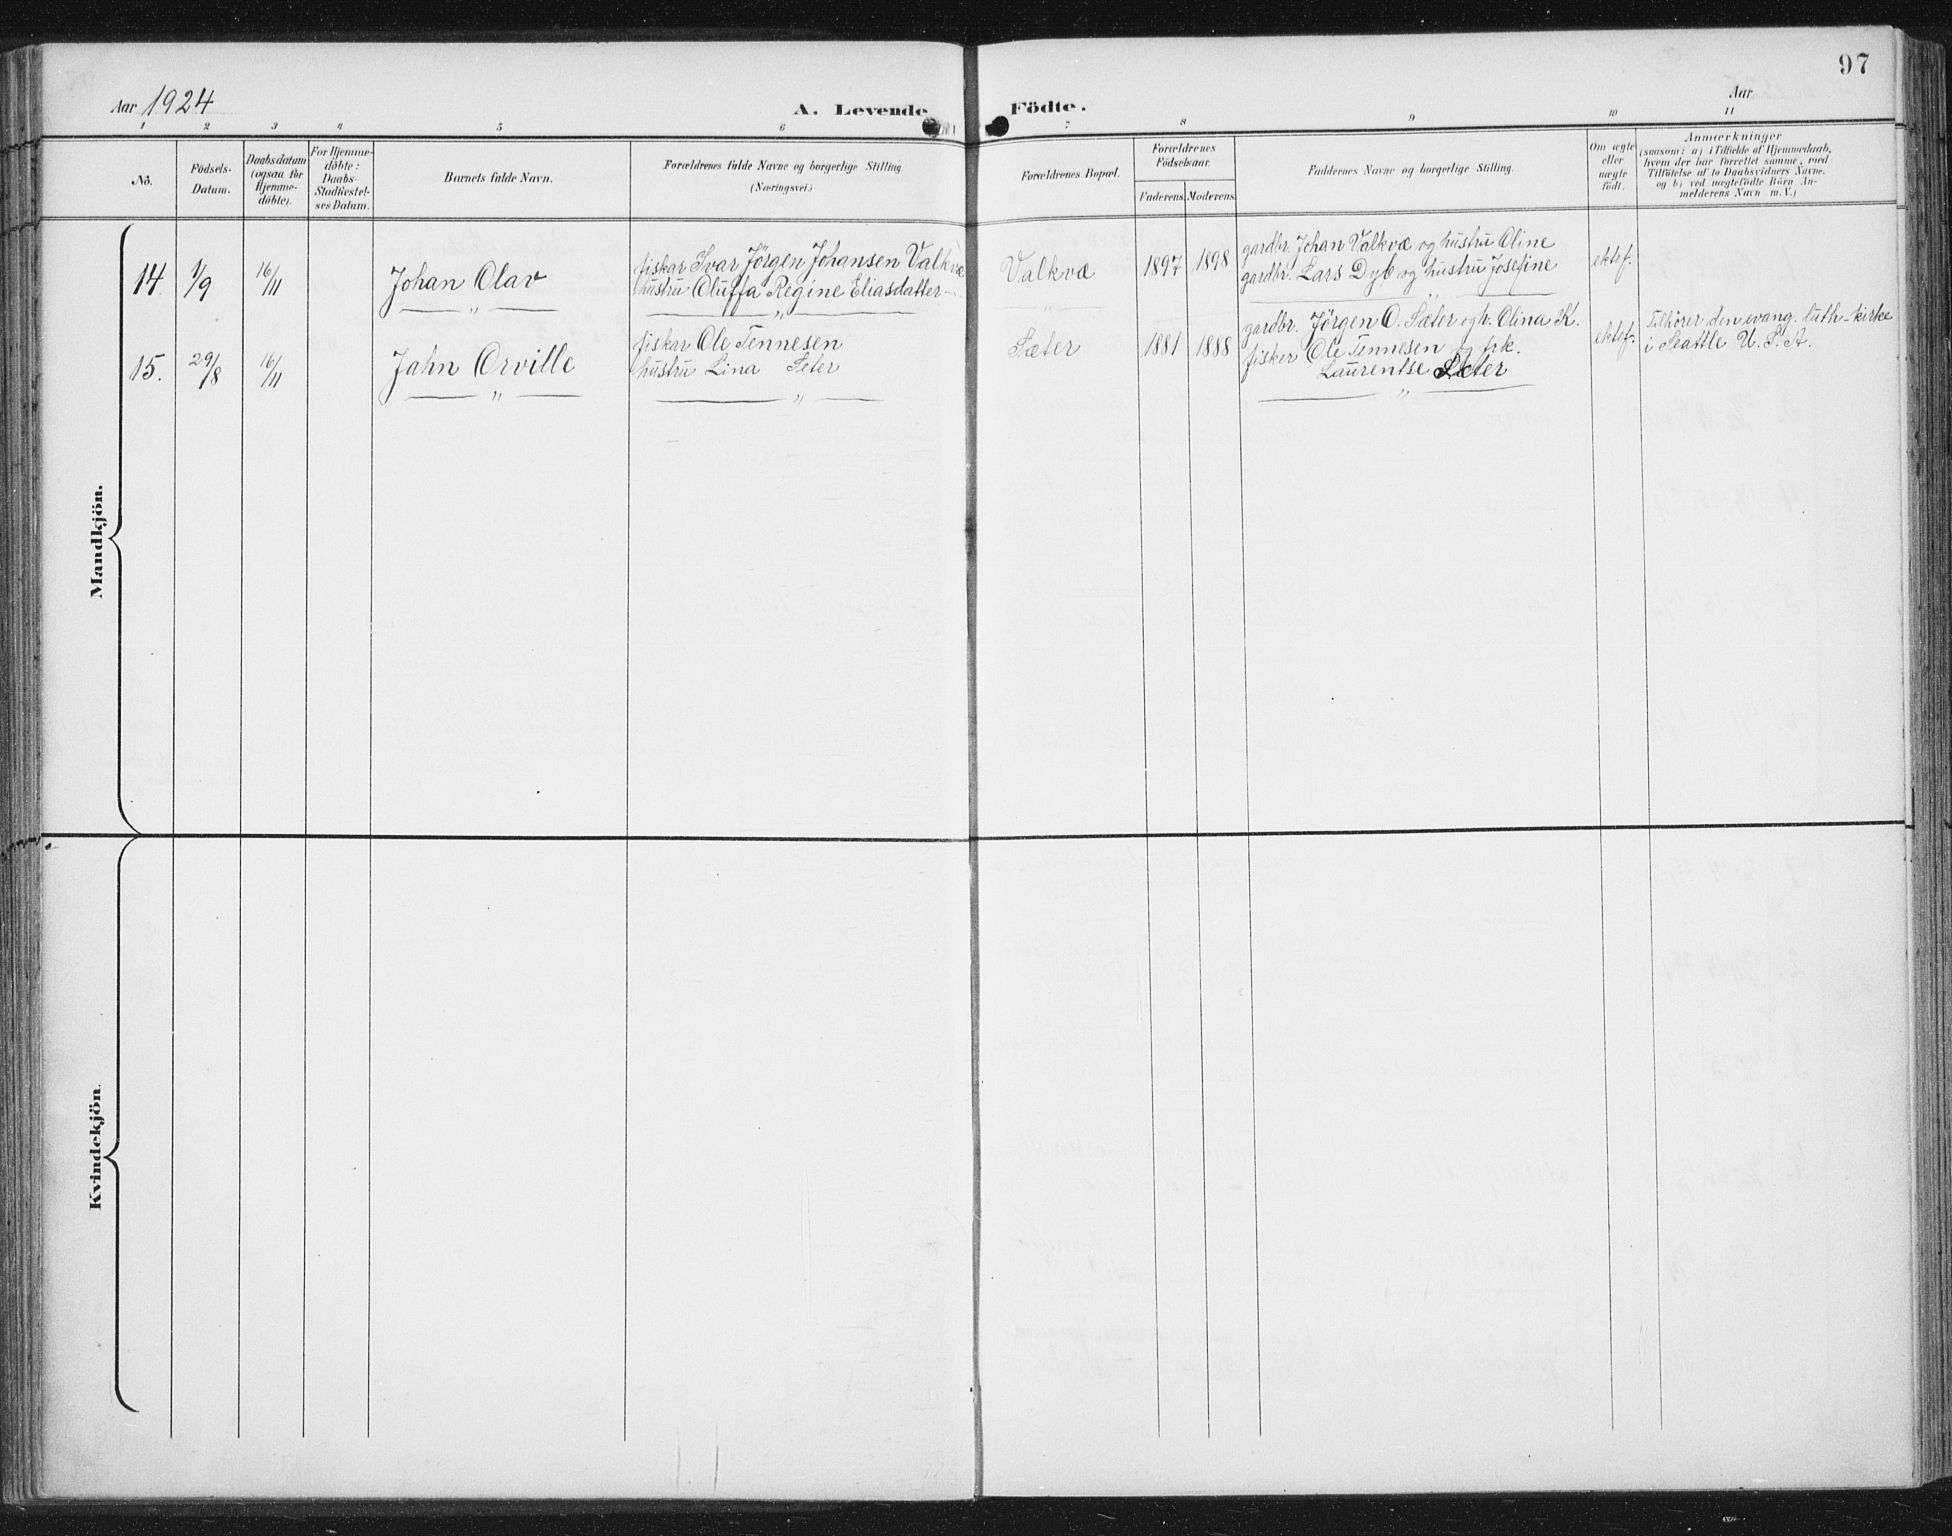 97
Aar 1924
A. Levende Födte.
Aar
1 2 3 4 5 6 7 8 9 10 11
No.
Födsels-
Datum.
Daabsdatum
(ogsaa for
Hjemme-
døbte).
For Hjemme-
döbte:
Daabs-
Stadfæstel-
ses Datum.
Barnets fulde Navn.
Forældrenes fulde Navne og borgerlige Stilling.
(Næringsvei.)
Forældrenes Bopæl.
Forældrenes
Födselsaar.
Faderens. Moderens.
Faddernes Navne og borgerlige Stilling.
Om ægte
eller
uægte
født.
Anmærkninger
(saasom: a) i Tilfælde af Hjemmedaab,
hvem der har forrettet samme, med
Tilföielse af to Daabsvidners Navne,
og b) ved uægtefödte Börn An-
melderens Navn m. V.)
Mandkjön.
14. 1/9 16/11 Johan Olav
fiskar Ivar Jörgen Johansen Valkvæ
hustru Oluffa Regine Eliasdatter
Valkvæ 1897 1898
gardbr. Johan Valkvæ og hustru Oline
gardbr. Lars Dyb og hustru Josefine
ektef.
15. 29/8 16/11 Jahn Orville
fiskar Ole Tennesen
hustru Lina Seter
Sæter 1881 1888
gardbr. Jörgen O. Sæter og h. Olina K.
fisker Ole Tennesen og frk.
Laurentse Sæter
ektef.
Tilhörer den evang. luth-kirke
i Seattle U. S. A.
Kvindekjön.